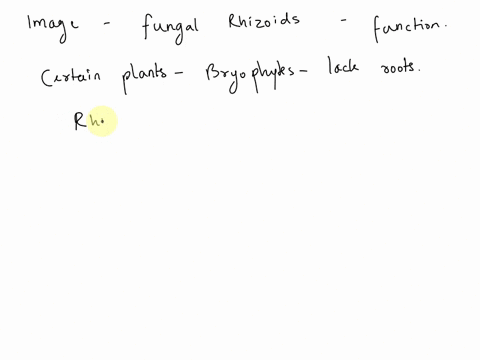 Image - fungal Rhizoids - function.
Certain plants - Bryophytes - lack roots.
Rh